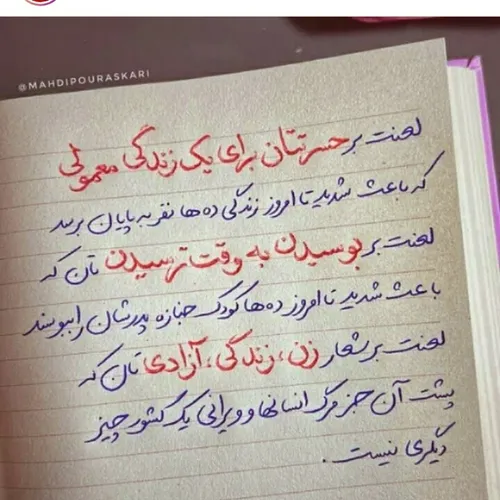 @MAHDIPOURASKARI
لعنت بر حسرتتان برای یک زندگی معمولی
که باعث شدید تا امروز زندگی ده ها نفر به پایان برسد
لعنت بر بوسیدن به وقت ترسیدن تان که
باعث شدید تا امروز ده ها کودک جنازه پدرشان را ببوسند
لعنت بر شعار زن، زندگی، آزادی تان که
پشت آن جز مرگ انسانها و ویرانی یک کشور چیز
دیگری نیست.